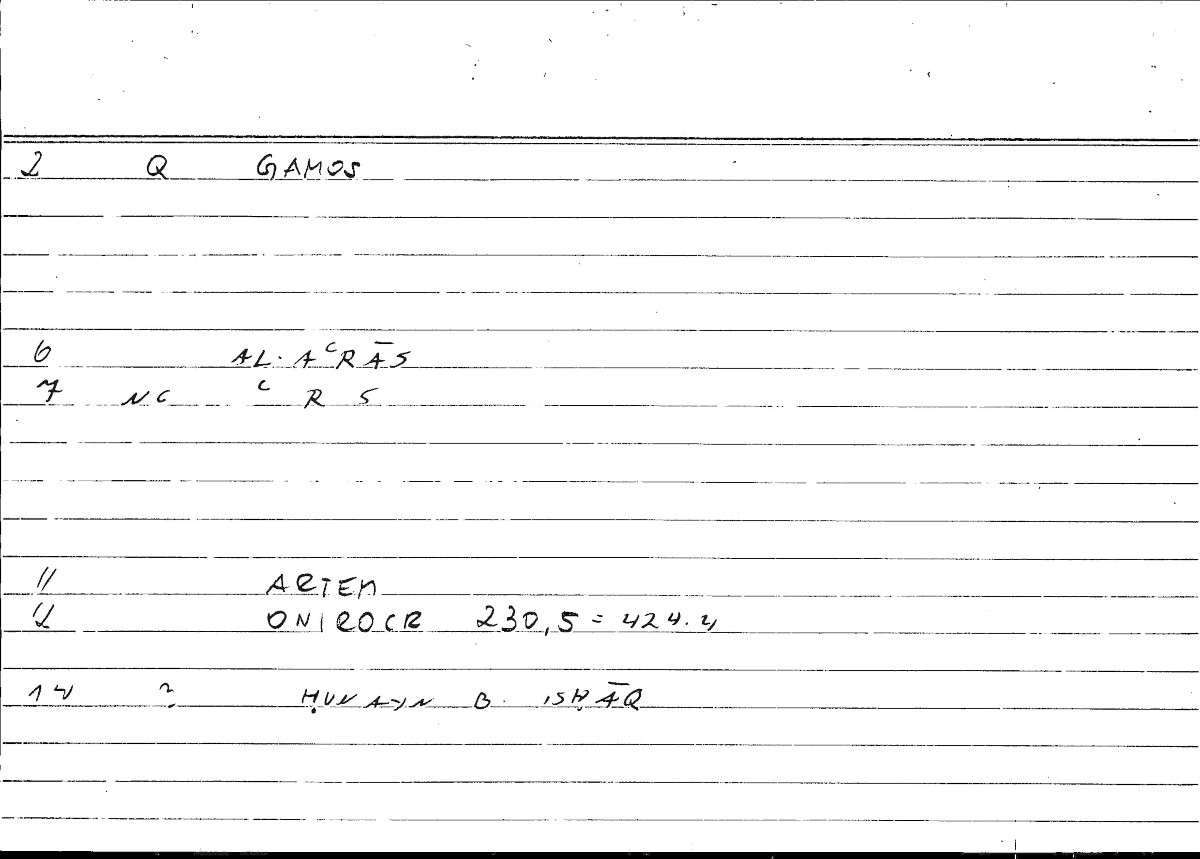 2 Q GAMOS
6 AL-AʿRĀS
7 NC ʿ R S
11 ARTEM
12 ONIROCR 230,5 = 424.4
14 ? ḤUNAYN B. ISḤĀQ